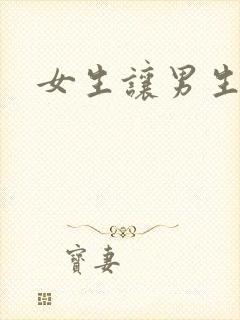 女生讓男生
寶妻